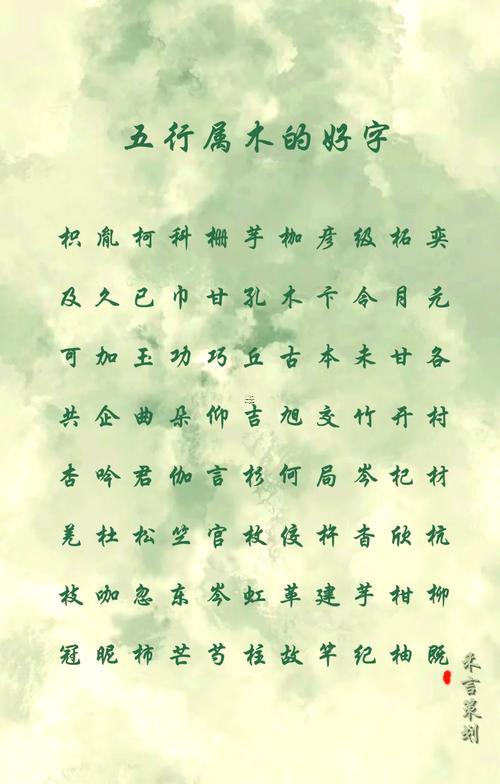 五行属木的好字
枳胤柯科栅芋枷彦级柘奕
及久已巾甘孔木卞令月元
可加玉功巧丘古本未甘各
共企曲朵仰吉旭交竹开村
杏吟君伽言杉何局岑杞材
羌杜松竺官枚佼杵香欣杭
枝咖忽东岑虹革建芋柑柳
冠昵柿芒芍柱故竿纪柚既
禾言策划